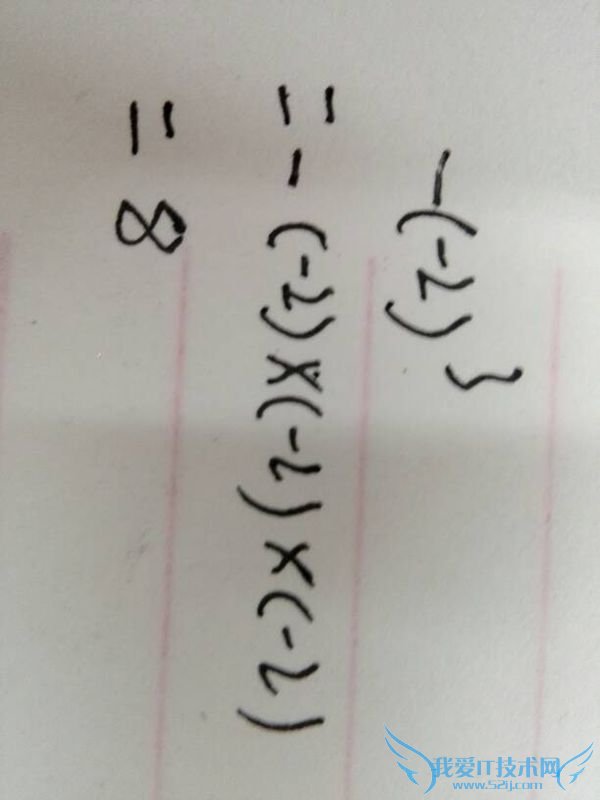 -(-2)³
=-(-2)×(-2)×(-2)
=8
我爱IT技术网
www.52ij.com